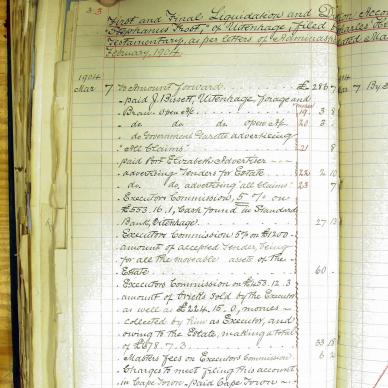 33
First and Final Liquidation and Dist
Stephanus Foot, of Uitenhage, filed
Testamentary, as per letters of Administ
February, 1904
1904
Mar 7 To Amount forward £ 286 7
„ paid J. Basett, Uitenhage forage and
Bran Open A/c 19 3 8
„ do. do. do open A/c 20 3
„ do Government Gazette advertising
"All Claims" 21 8
paid Port Elizabeth Advertiser
advertising Tenders for Estate 22 2 10
„ do. do, advertising "all Claims" 23 7
Executors Commission, 5 % on
£553.16.1, Cash found in Standard
Bank, Uitenhage 27 13
Executors Commission 5% on £1200
amount of accepted Tender, being
for all the moveable assets of the
Estate 60
Executors Commission on £453.12.3
amount of bricks sold by the Executor
as well as £224.15.0, monies
collected by him as Executor, and
owing to the Estate, making a total
of £678.7.3. 33 18
Masters fees on Executors Commission 6 2
Charges to meet filing this account
in Cape Town - paid Cape Town